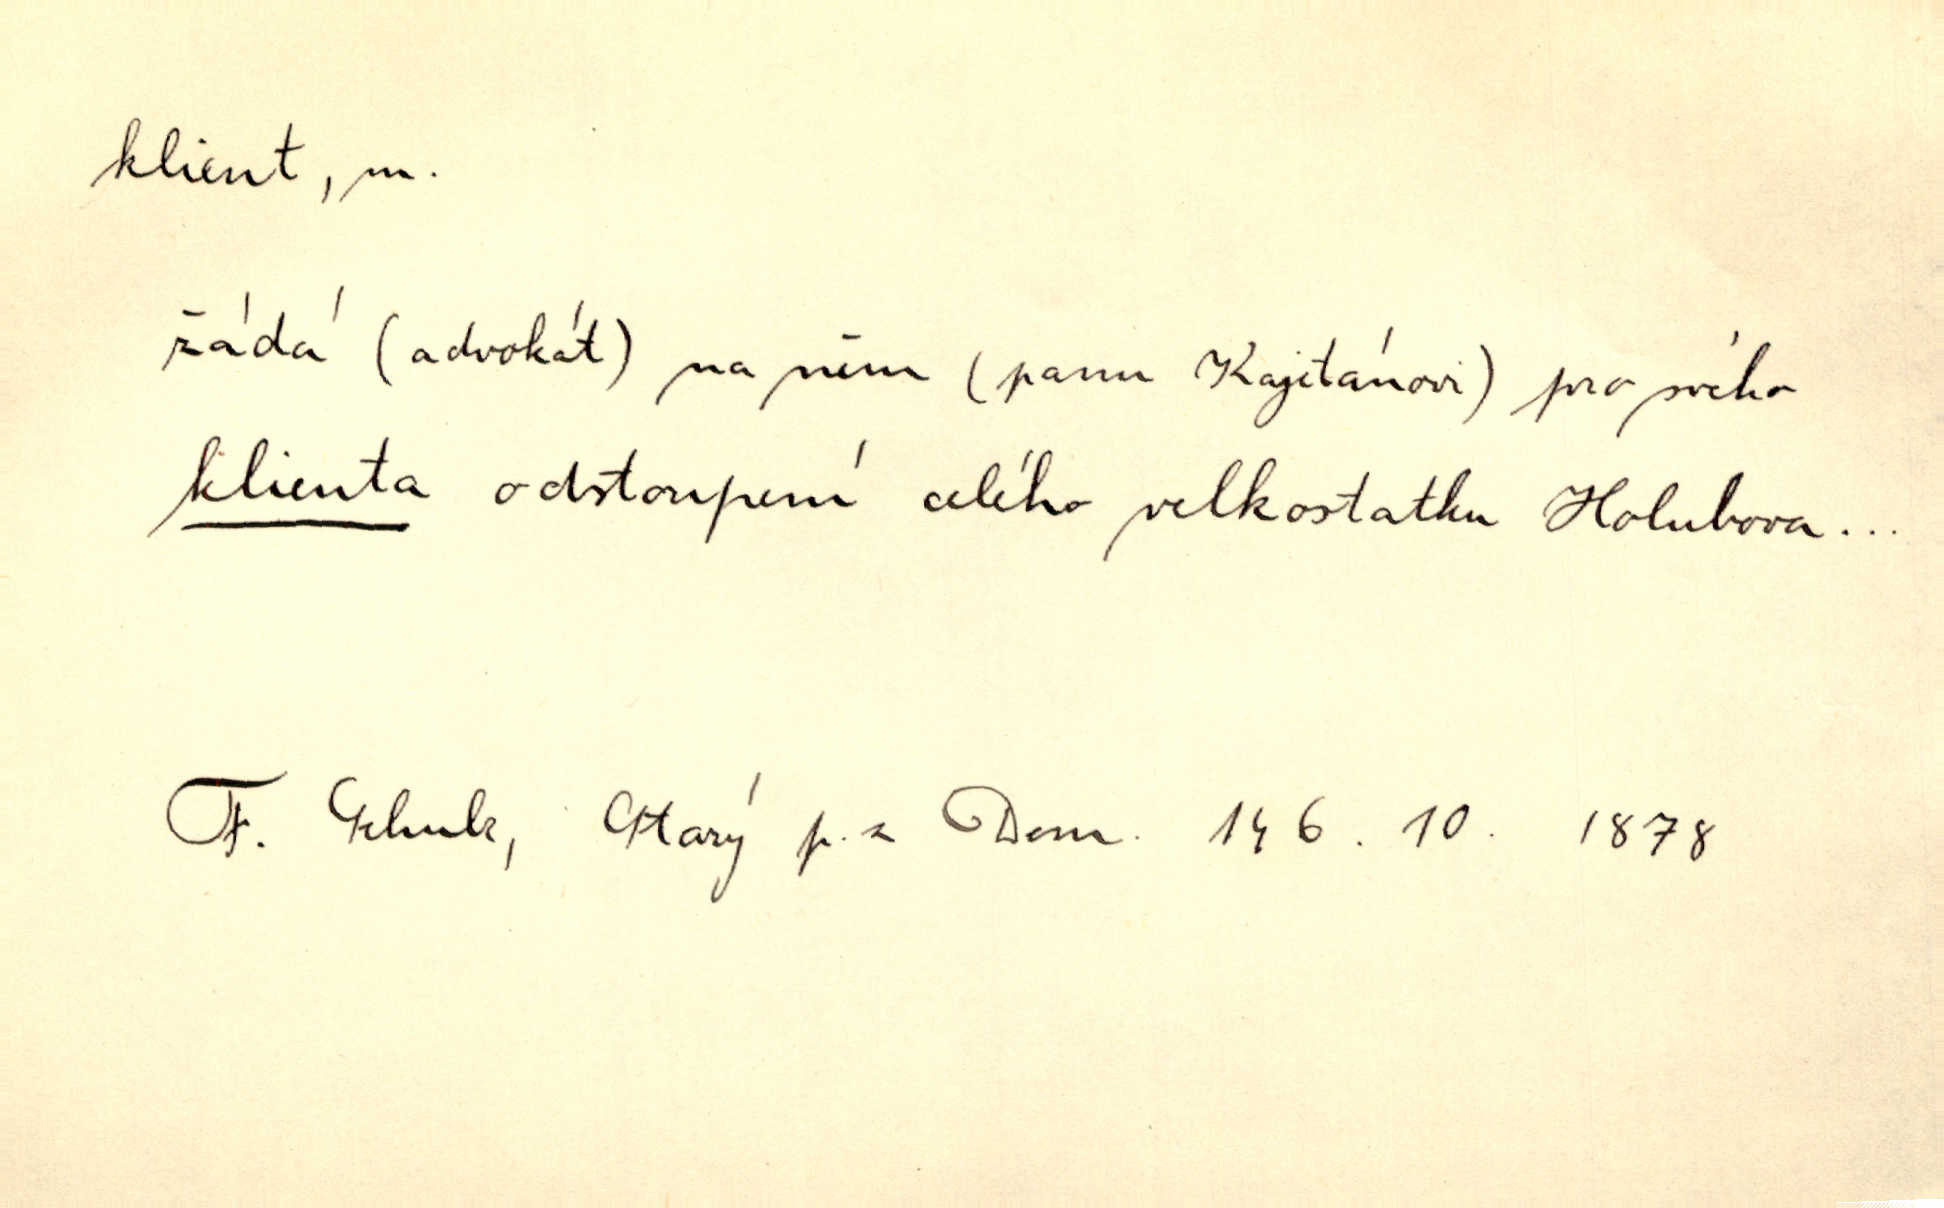 klient, m.
žádá (advokát) na něm (panu Kajetánovi) pro svého
klienta odstoupení celého velkostatku Holubova...
F. Schulz, Starý p. z Dom. 146. 10. 1878